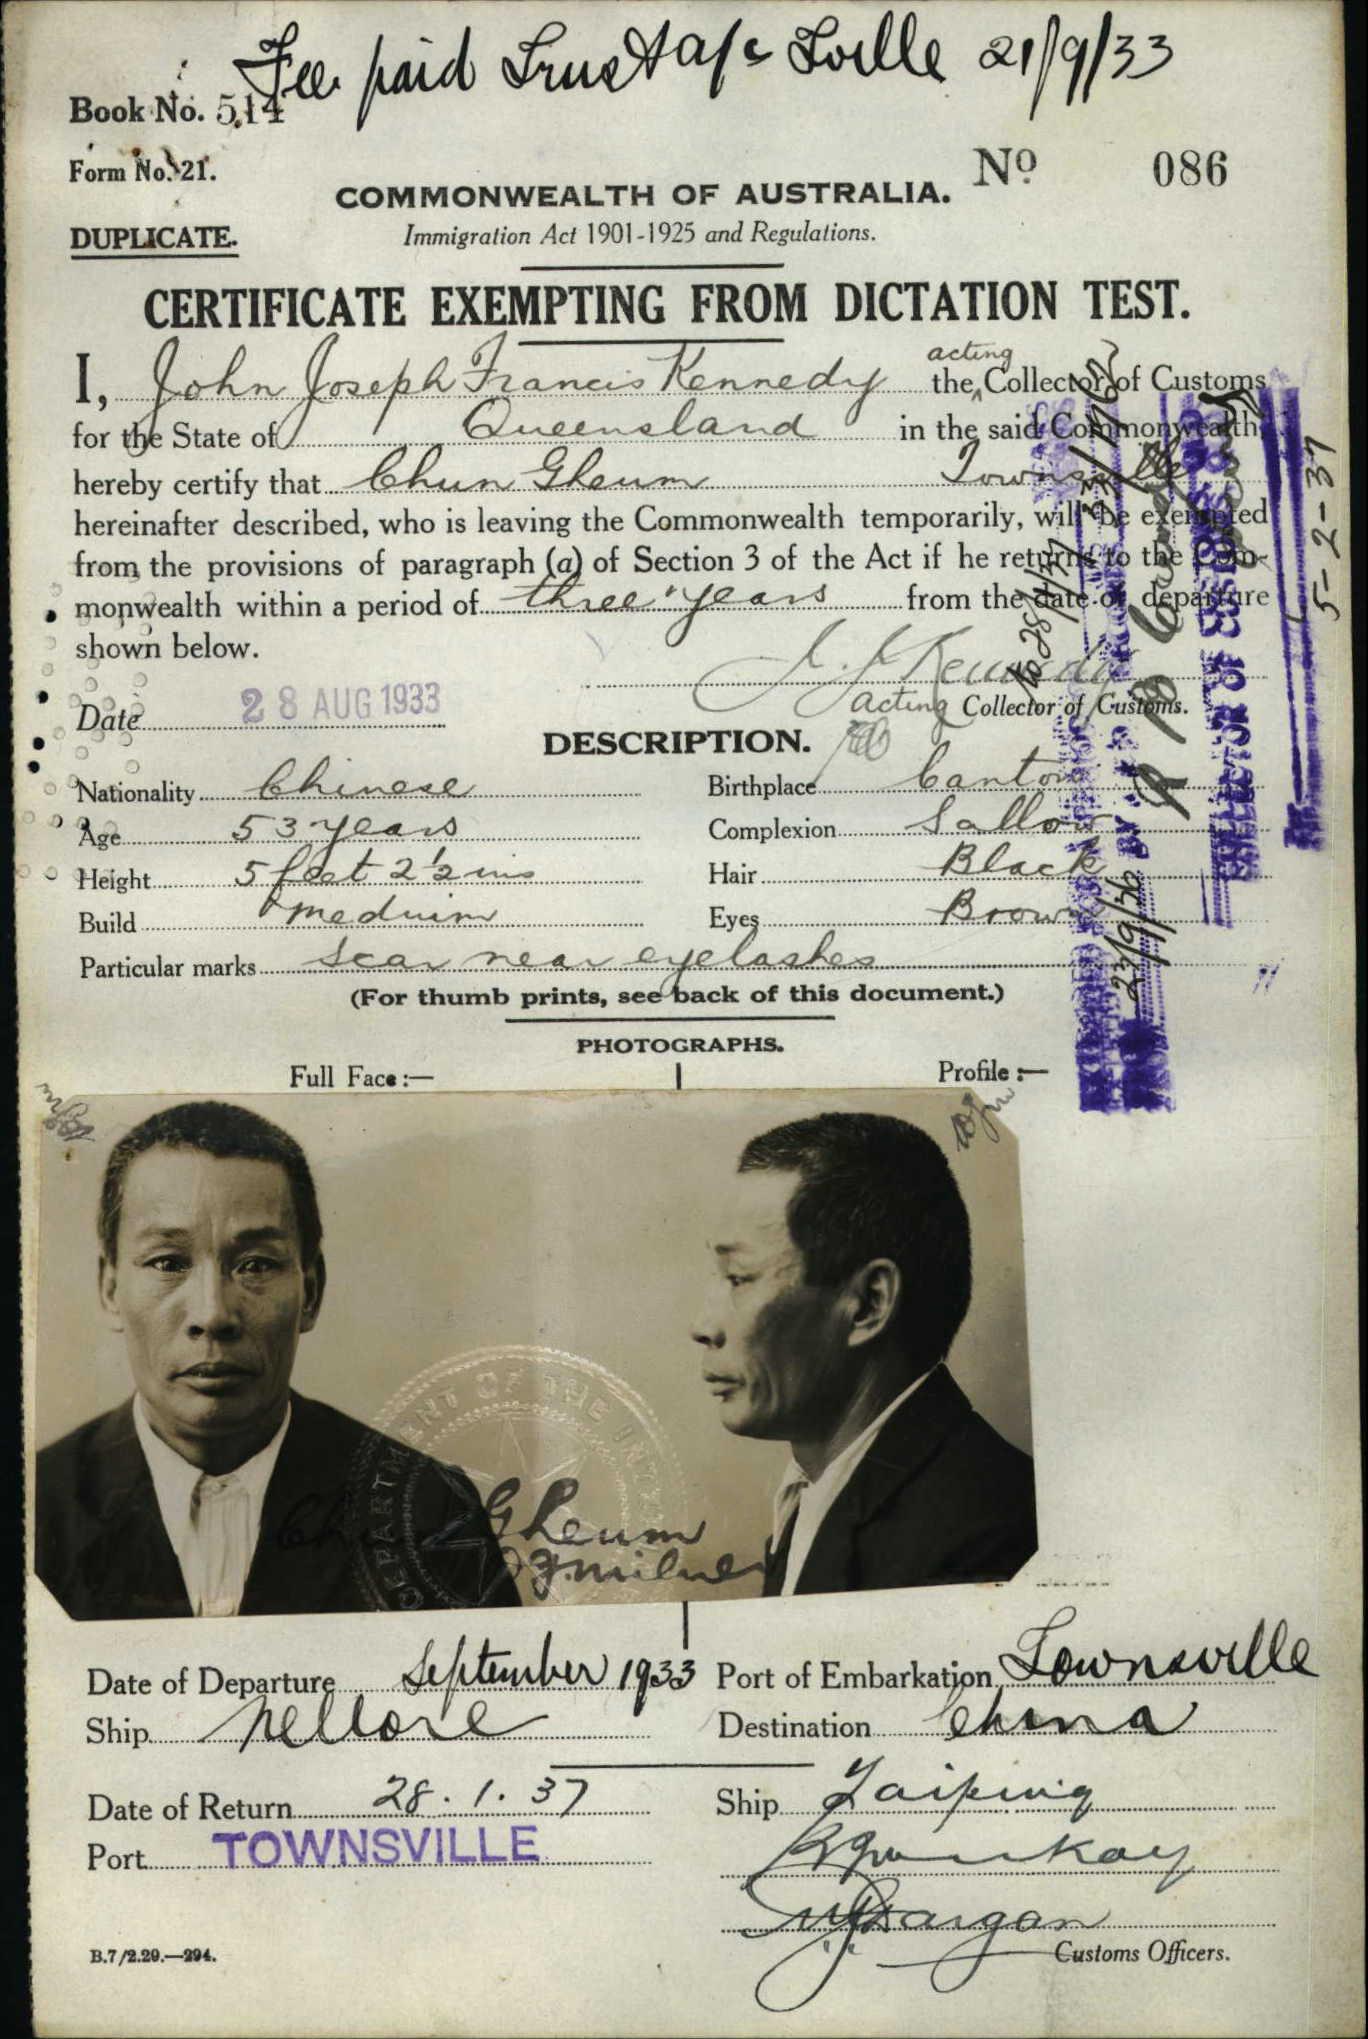 Fee paid Trust a/c Tville 21/9/33
Book No. 514
Form No. 21.
No. 086
COMMONWEALTH OF AUSTRALIA.
DUPLICATE.
Immigration Act 1901-1925 and Regulations.
CERTIFICATE EXEMPTING FROM DICTATION TEST.
I, John Joseph Francis Kennedy the acting Collector of Customs
for the State of Queensland in the said Commonwealth
hereby certify that Chun Gheum Townsville
hereinafter described, who is leaving the Commonwealth temporarily, will be exempted
from the provisions of paragraph (a) of Section 3 of the Act if he returns to the Com-
monwealth within a period of three years from the date of departure
shown below.
J. J. Kennedy
Date 28 AUG 1933
acting Collector of Customs.
DESCRIPTION.
Nationality Chinese Birthplace Canton
Age 53 years Complexion Sallow
Height 5 feet 2½ ins Hair Black
Build medium Eyes Brown
Particular marks scar near eyelashes
(For thumb prints, see back of this document.)
PHOTOGRAPHS.
Full Face:— Profile:—
DEPARTMENT OF THE
Chun Gheum
Milner
Date of Departure September 1933 Port of Embarkation Townsville
Ship Nellore Destination China
Date of Return 28.1.37 Ship Taiping
Port TOWNSVILLE
Customs Officers.
B.7/2.29.—294.
to 28/1/37 33/1767
23/9/36 BY
COLLECTOR OF CUSTOMS
5-2-37